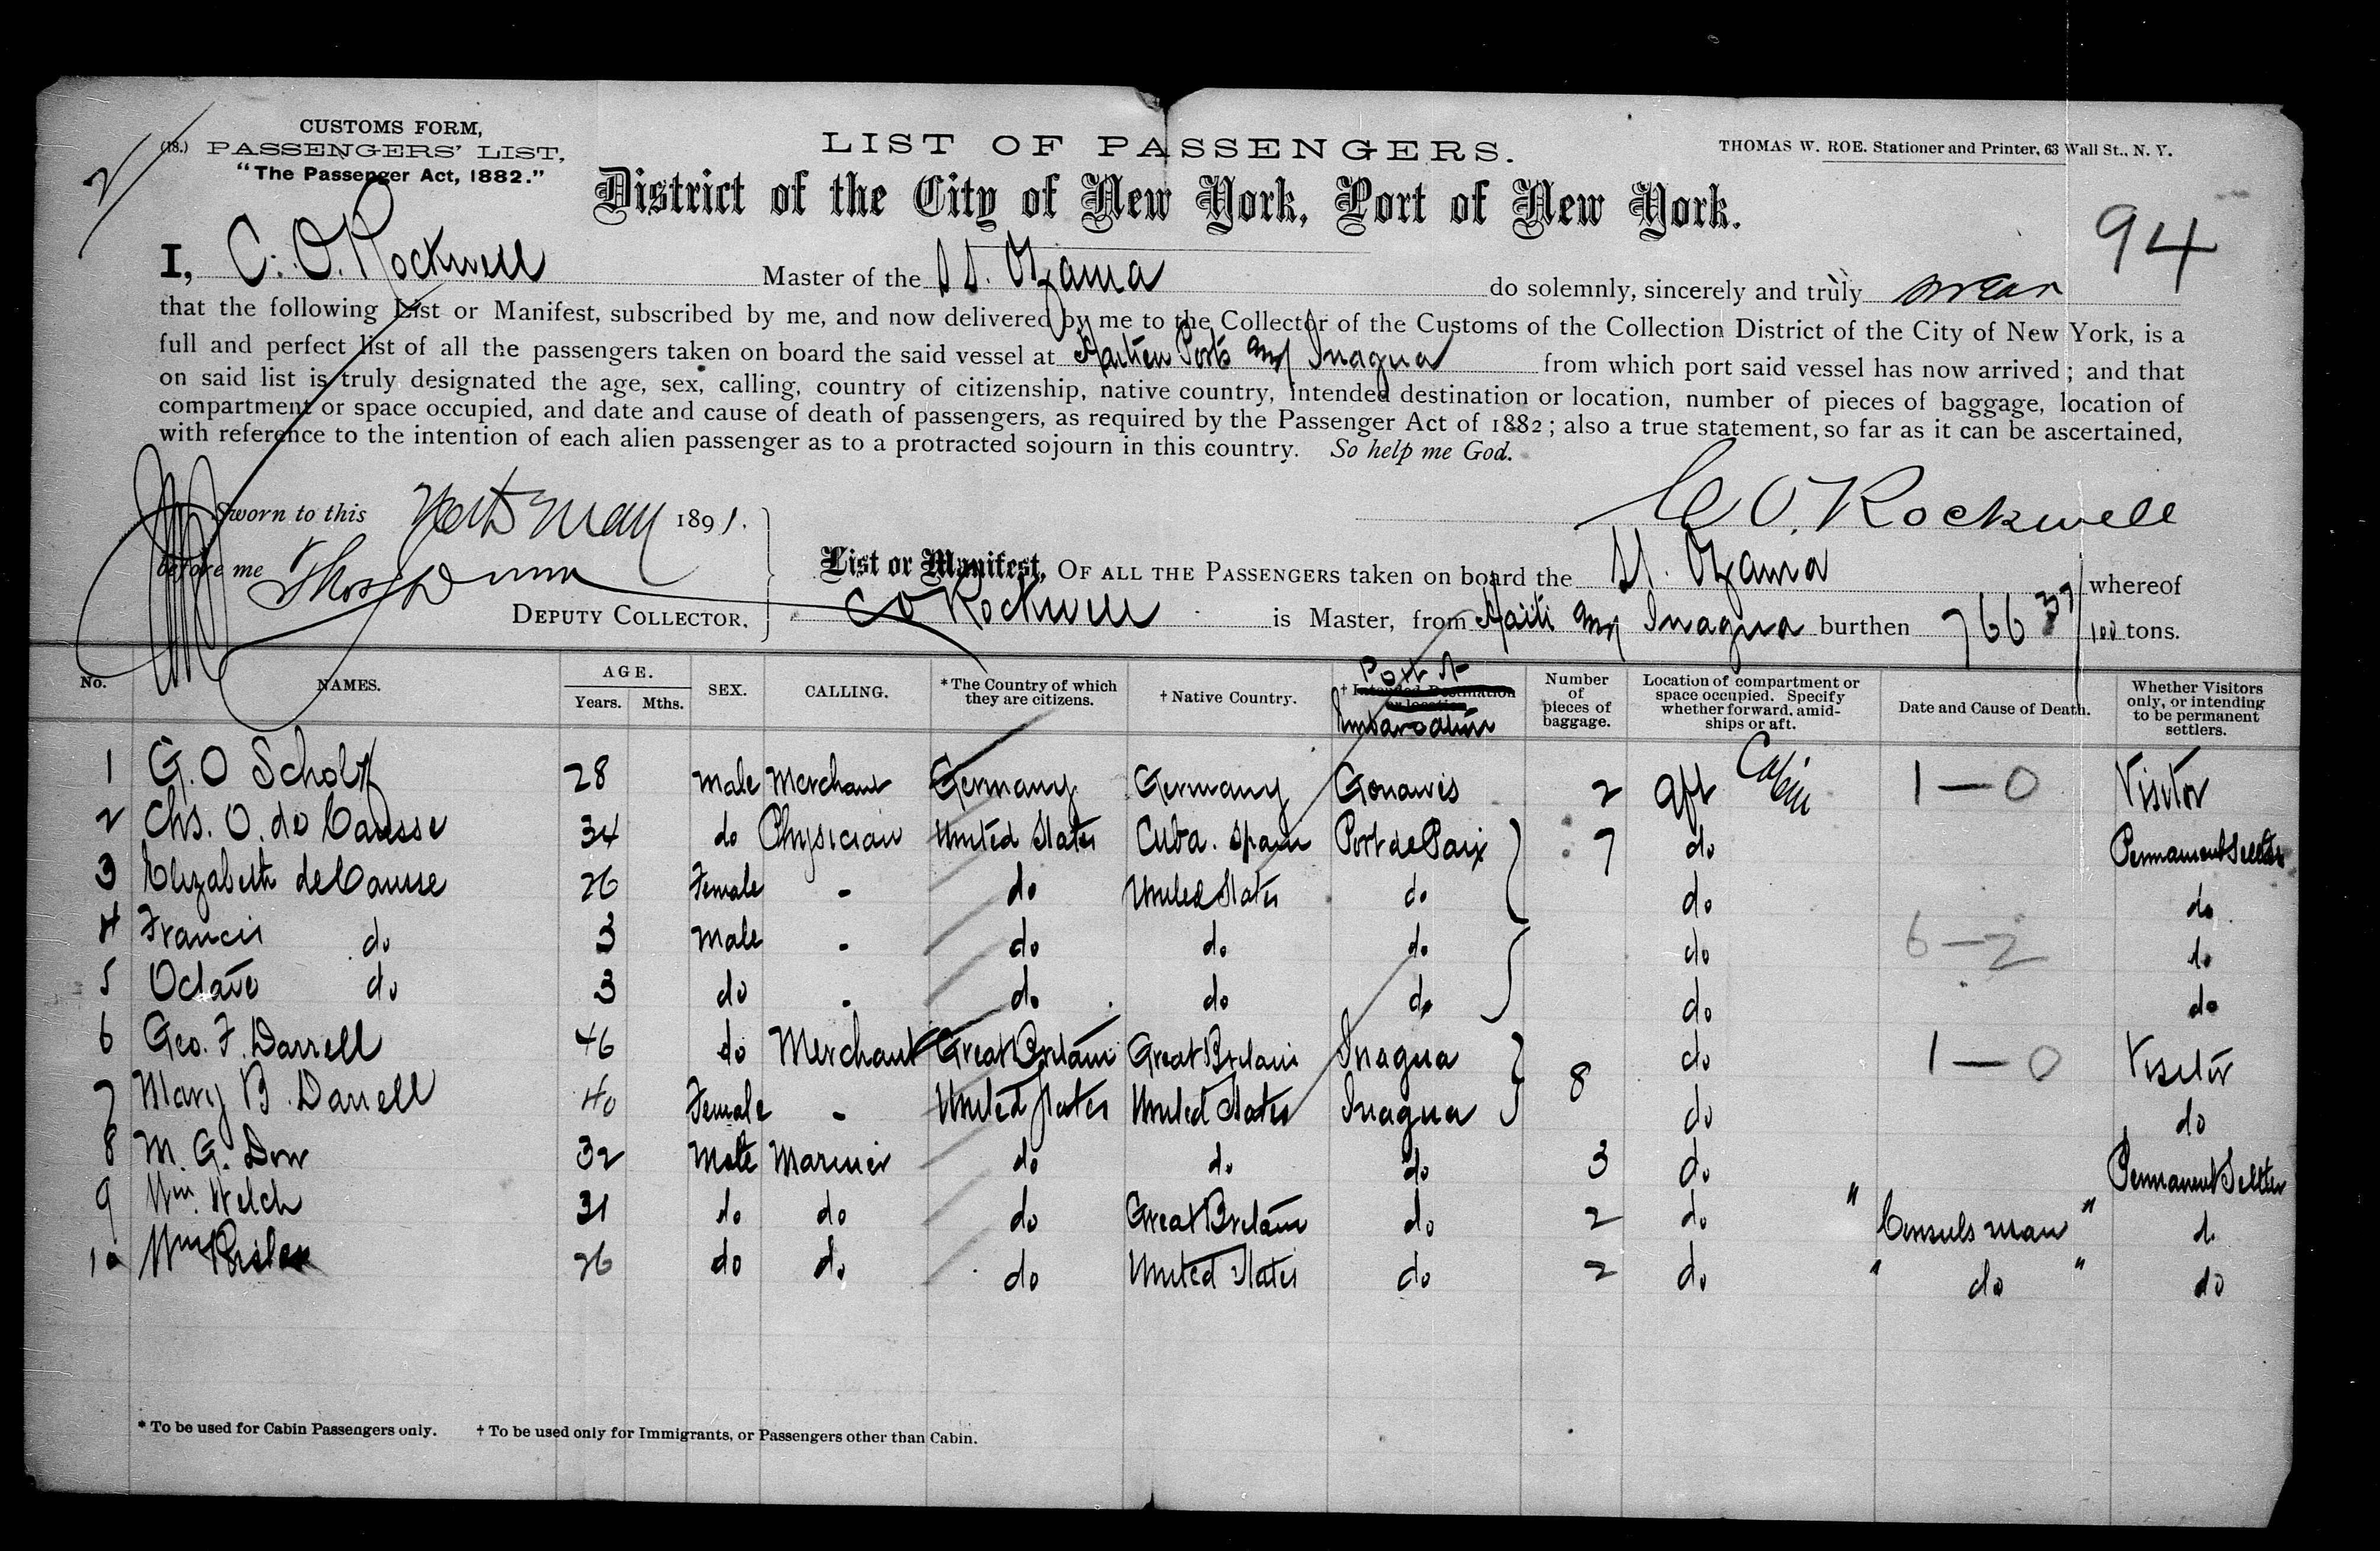 CUSTOMS FORM,
(18.) PASSENGERS' LIST,
"The Passenger Act, 1882."
2
LIST OF PASSENGERS.
THOMAS W. ROE. Stationer and Printer, 63 Wall St., N. Y.
District of the City of New York, Port of New York.
94
I, C. O. Rockwell Master of the SS. Ozama do solemnly, sincerely and truly swear
that the following List or Manifest, subscribed by me, and now delivered by me to the Collector of the Customs of the Collection District of the City of New York, is a
full and perfect list of all the passengers taken on board the said vessel at Haitien Ports and Inagua from which port said vessel has now arrived; and that
on said list is truly designated the age, sex, calling, country of citizenship, native country, intended destination or location, number of pieces of baggage, location of
compartment or space occupied, and date and cause of death of passengers, as required by the Passenger Act of 1882; also a true statement, so far as it can be ascertained,
with reference to the intention of each alien passenger as to a protracted sojourn in this country. So help me God.
C O. Rockwell
Sworn to this May 1891.
before me Thos Dunn
DEPUTY COLLECTOR.
List or Manifest, OF ALL THE PASSENGERS taken on board the SS. Ozama whereof
C O Rockwell is Master, from Haiti and Inagua burthen 766 37/100 tons.
No. NAMES. AGE. Years. Mths. SEX. CALLING. *The Country of which they are citizens. † Native Country. † Intended Destination or location. Port of Embarcation Number of pieces of baggage. Location of compartment or space occupied. Specify whether forward, amidships or aft. Date and Cause of Death. Whether Visitors only, or intending to be permanent settlers.
1 G. O Scholtz 28 Male Merchant Germany Germany Gonaives 2 Aft Cabin 1—0 Visitor
2 Chs. O. de Causse 34 do Physician United States Cuba. Spain Port de Paix 7 do Permanent Settler
3 Elizabeth de Causse 26 Female - do United States do do do
4 Francis do 3 Male - do do do do 6—2 do
5 Octave do 3 do - do do do do do
6 Geo. F. Darrell 46 do Merchant Great Britain Great Britain Inagua do 1—0 Visitor
7 Mary B. Darrell 40 Female - United States United States Inagua 8 do do
8 M. G. Dow 32 Male Mariner do do do 3 do Permanent Settler
9 Wm. Welch 31 do do do Great Britain do 2 do " Consuls man " do
10 Wm 26 do do do United States do 2 do " do " do
* To be used for Cabin Passengers only. † To be used only for Immigrants, or Passengers other than Cabin.